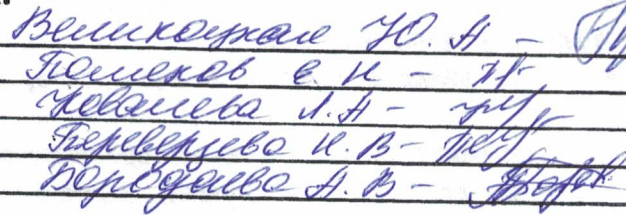 Великоцкая Ю. А -
Полеков е Н -
Ковалева Л. А -
Переверзева Н. В -
Бородаева А. В -